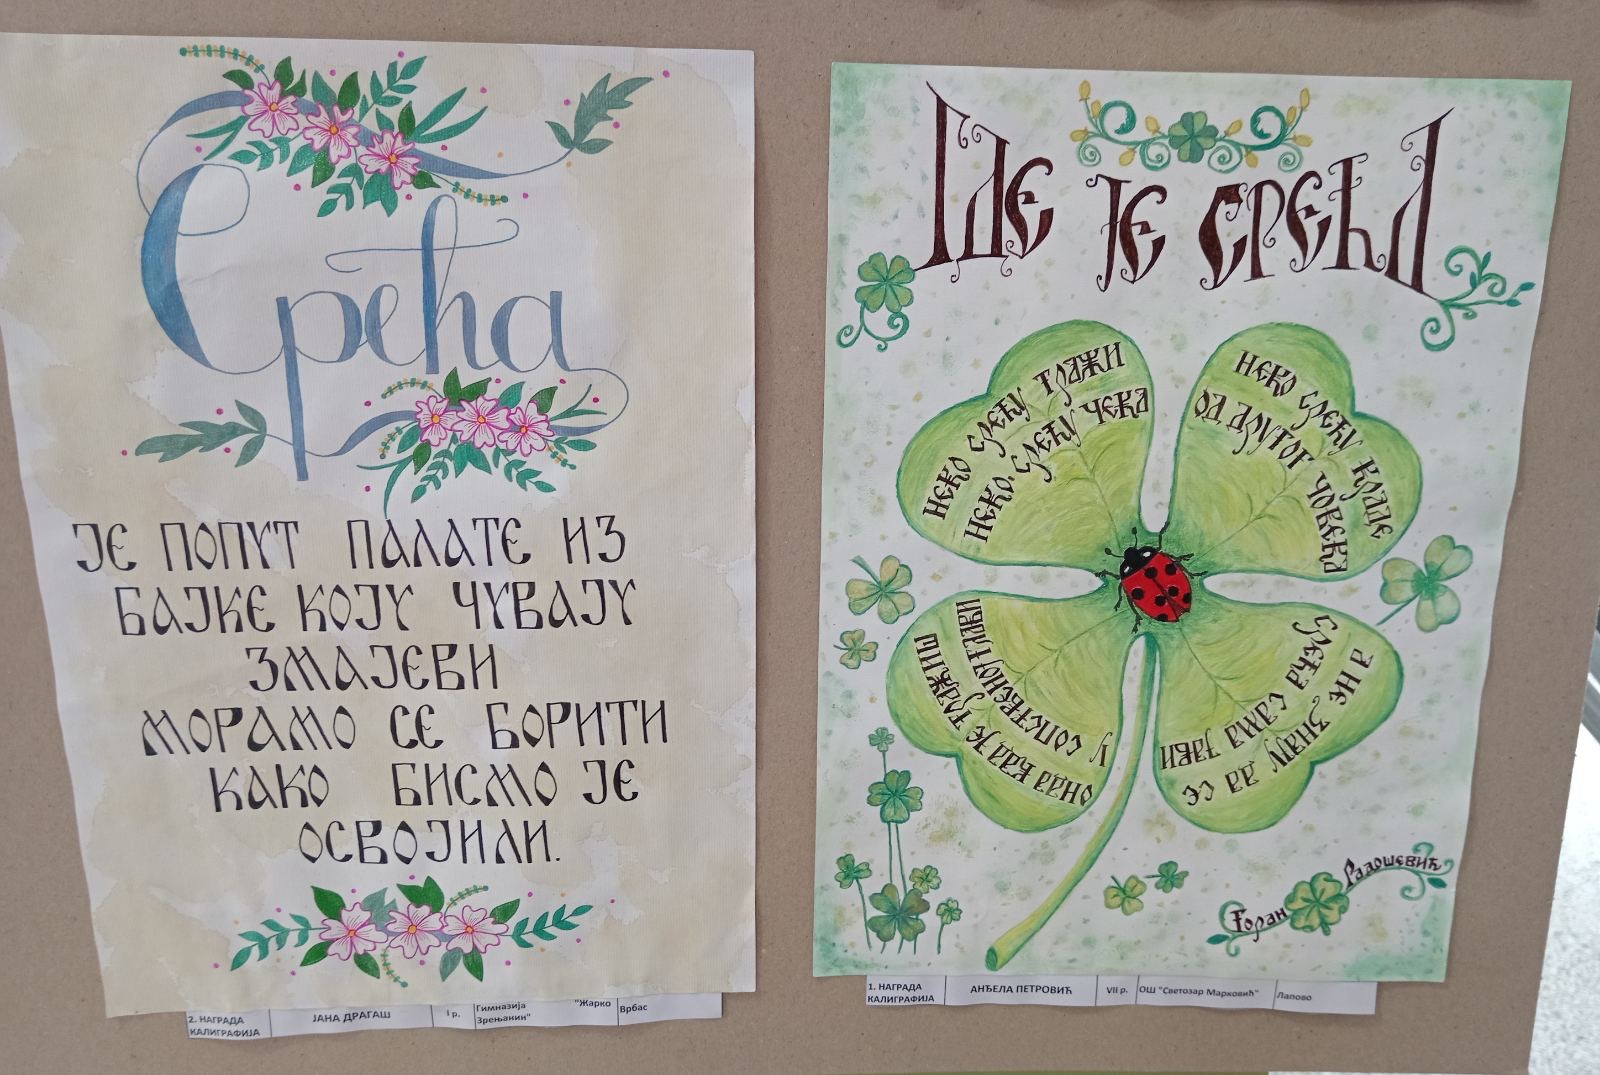 Срећа
ЈЕ ПОПУТ ПАЛАТЕ ИЗ
БАЈКЕ КОЈУ ЧУВАЈУ
ЗМАЈЕВИ
МОРАМО СЕ БОРИТИ
КАКО БИСМО ЈЕ
ОСВОЈИЛИ.
2. НАГРАДА
КАЛИГРАФИЈА
ЈАНА ДРАГАШ
I р.
Гимназија "Жарко
Зрењанин"
Врбас
ГДЕ ЈЕ СРЕЋА
НЕКО СРЕЋУ ТРАЖИ
НЕКО СРЕЋУ ЧЕКА
НЕКО СРЕЋУ КРАДЕ
ОД ДРУГОГ ЧОВЕКА
ОНДА КАДА ЈЕ ТРАЖИШ
У СОПСТВЕНОЈ ГЛАВИ
А НЕ ЗНАЈУ ДА СЕ
СРЕЋА САМА ЈАВИ
Горан
Радошевић
1. НАГРАДА
КАЛИГРАФИЈА
АНЂЕЛА ПЕТРОВИЋ
VII р.
ОШ "Светозар Марковић"
Лапово